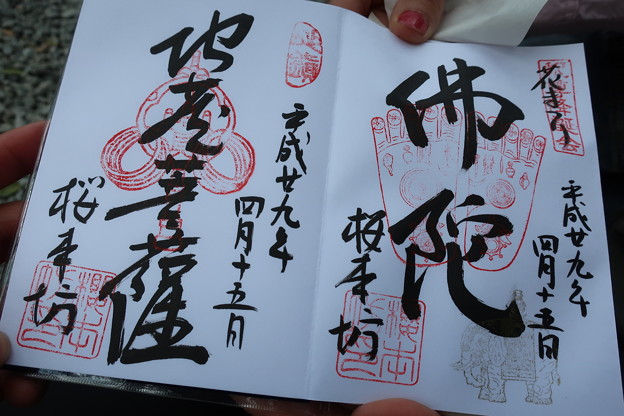 花まつり
佛陀
平成廿九年
四月十五日
櫻本坊
地蔵菩薩
平成廿九年
四月十五日
櫻本坊